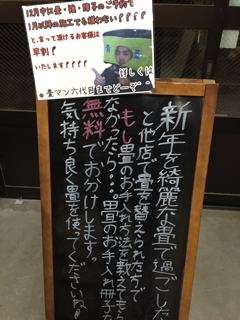 12月中に畳・襖・障子のご予約で
1月以降の施工でも構わない!!!!
と、言って頂けるお客様は
早割!
いたします!!!!
詳しくは
※畳マン六代目までどーぞ
新年を綺麗な畳で過ごした
と他店で畳を替えられた方で
もし畳のお手入れ方法を教えてもら
なかったら…畳のお手入れ冊子が
無料でお分けします。
気持ち良く畳を使ってくださいね!